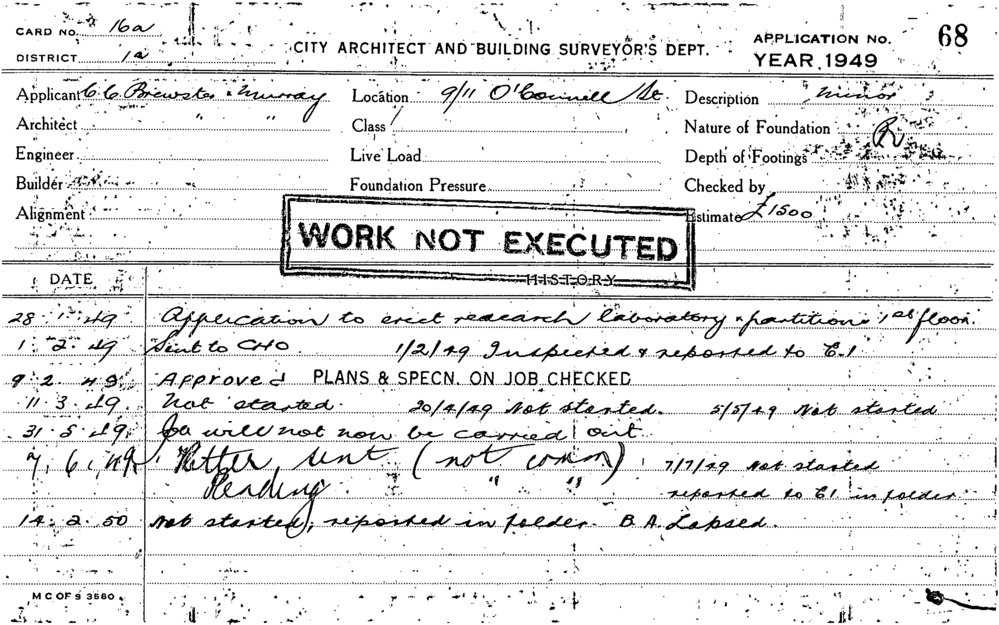 CARD NO. 16a
DISTRICT 1a
CITY ARCHITECT AND BUILDING SURVEYOR'S DEPT.
APPLICATION No. 68
YEAR 1949
Applicant C C Brewster & Murray Location 9/11 O'Connell St Description Minor
Architect " " Class Nature of Foundation
Engineer Live Load Depth of Footings
Builder Foundation Pressure Checked by
Alignment Estimate £1500
WORK NOT EXECUTED
DATE HISTORY
28 . 1 . 49 Application to erect research laboratory & partitions 1st floor.
1 . 2 . 49 Sent to CHO. 1/2/49 Inspected & reported to E.1
9 . 2 . 49 Approved PLANS & SPECN. ON JOB CHECKED
11 . 3 . 49 Not started. 20/4/49 Not started. 5/5/49 Not started
31 . 5 . 49 Job will not now be carried out
7 . 6 . 49 Letter sent (not comm) 7/7/49 Not started
Pending " " reported to E1 in folder
14 . 2 . 50 Not started, reported in folder. B.A. Lapsed.
M C OF S 3580